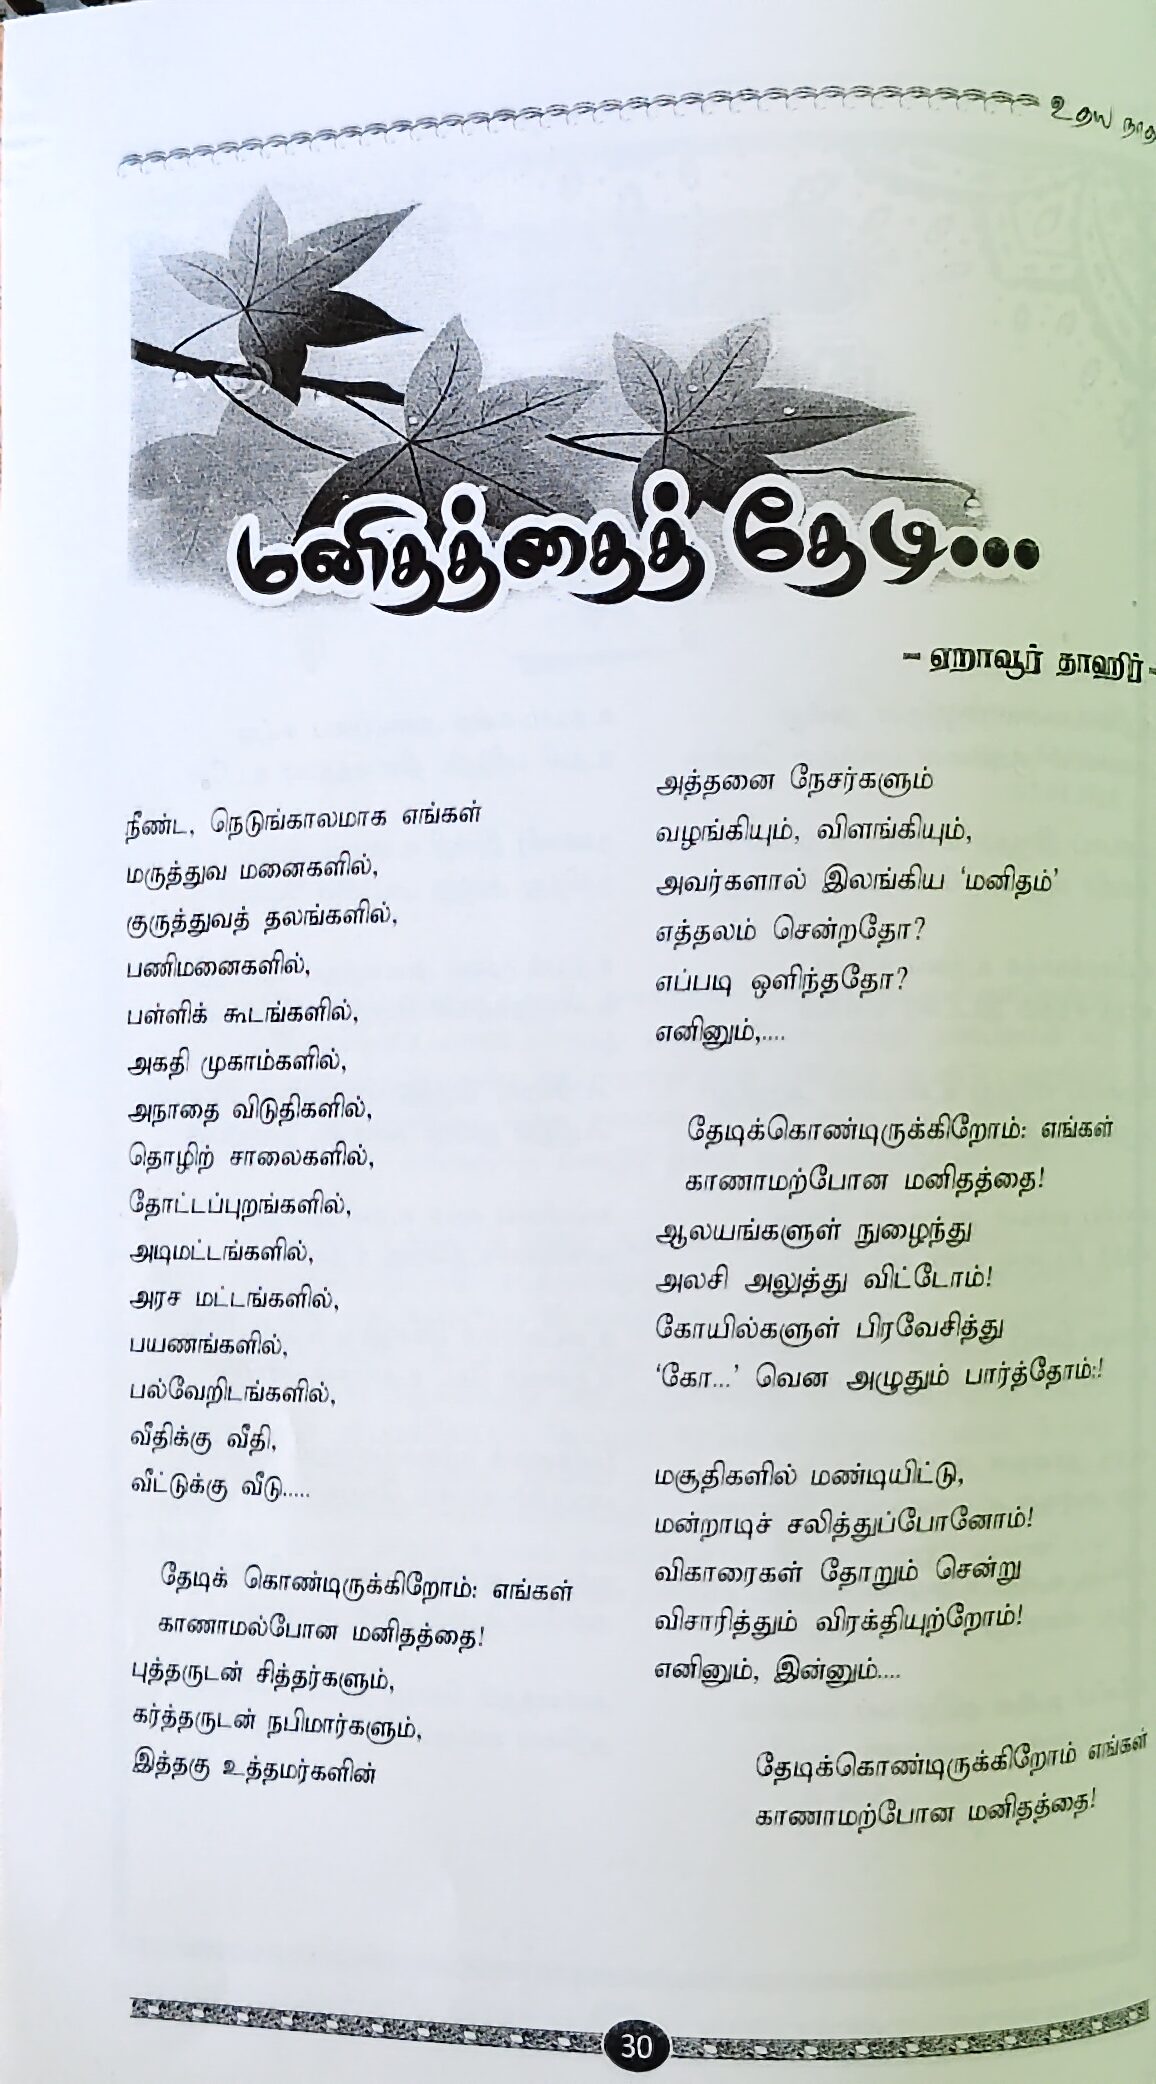 உதய
மனிதத்தைத் தேடி...
- ஏறாவூர் தாஹிர் -
நீண்ட, நெடுங்காலமாக எங்கள்
மருத்துவ மனைகளில்,
குருத்துவத் தலங்களில்,
பணிமனைகளில்,
பள்ளிக் கூடங்களில்,
அகதி முகாம்களில்,
அநாதை விடுதிகளில்,
தொழிற் சாலைகளில்,
தோட்டப்புறங்களில்,
அடிமட்டங்களில்,
அரச மட்டங்களில்,
பயணங்களில்,
பல்வேறிடங்களில்,
வீதிக்கு வீதி,
வீட்டுக்கு வீடு.....
தேடிக் கொண்டிருக்கிறோம்: எங்கள்
காணாமல்போன மனிதத்தை!
புத்தருடன் சித்தர்களும்,
கர்த்தருடன் நபிமார்களும்,
இத்தகு உத்தமர்களின்
அத்தனை நேசர்களும்
வழங்கியும், விளங்கியும்,
அவர்களால் இலங்கிய ‘மனிதம்’
எத்தலம் சென்றதோ?
எப்படி ஒளிந்ததோ?
எனினும்,....
தேடிக்கொண்டிருக்கிறோம்: எங்கள்
காணாமற்போன மனிதத்தை!
ஆலயங்களுள் நுழைந்து
அலசி அலுத்து விட்டோம்!
கோயில்களுள் பிரவேசித்து
‘கோ...’ வென அழுதும் பார்த்தோம்:!
மசூதிகளில் மண்டியிட்டு,
மன்றாடிச் சலித்துப்போனோம்!
விகாரைகள் தோறும் சென்று
விசாரித்தும் விரக்தியுற்றோம்!
எனினும், இன்னும்....
தேடிக்கொண்டிருக்கிறோம் எங்கள்
காணாமற்போன மனிதத்தை!
30